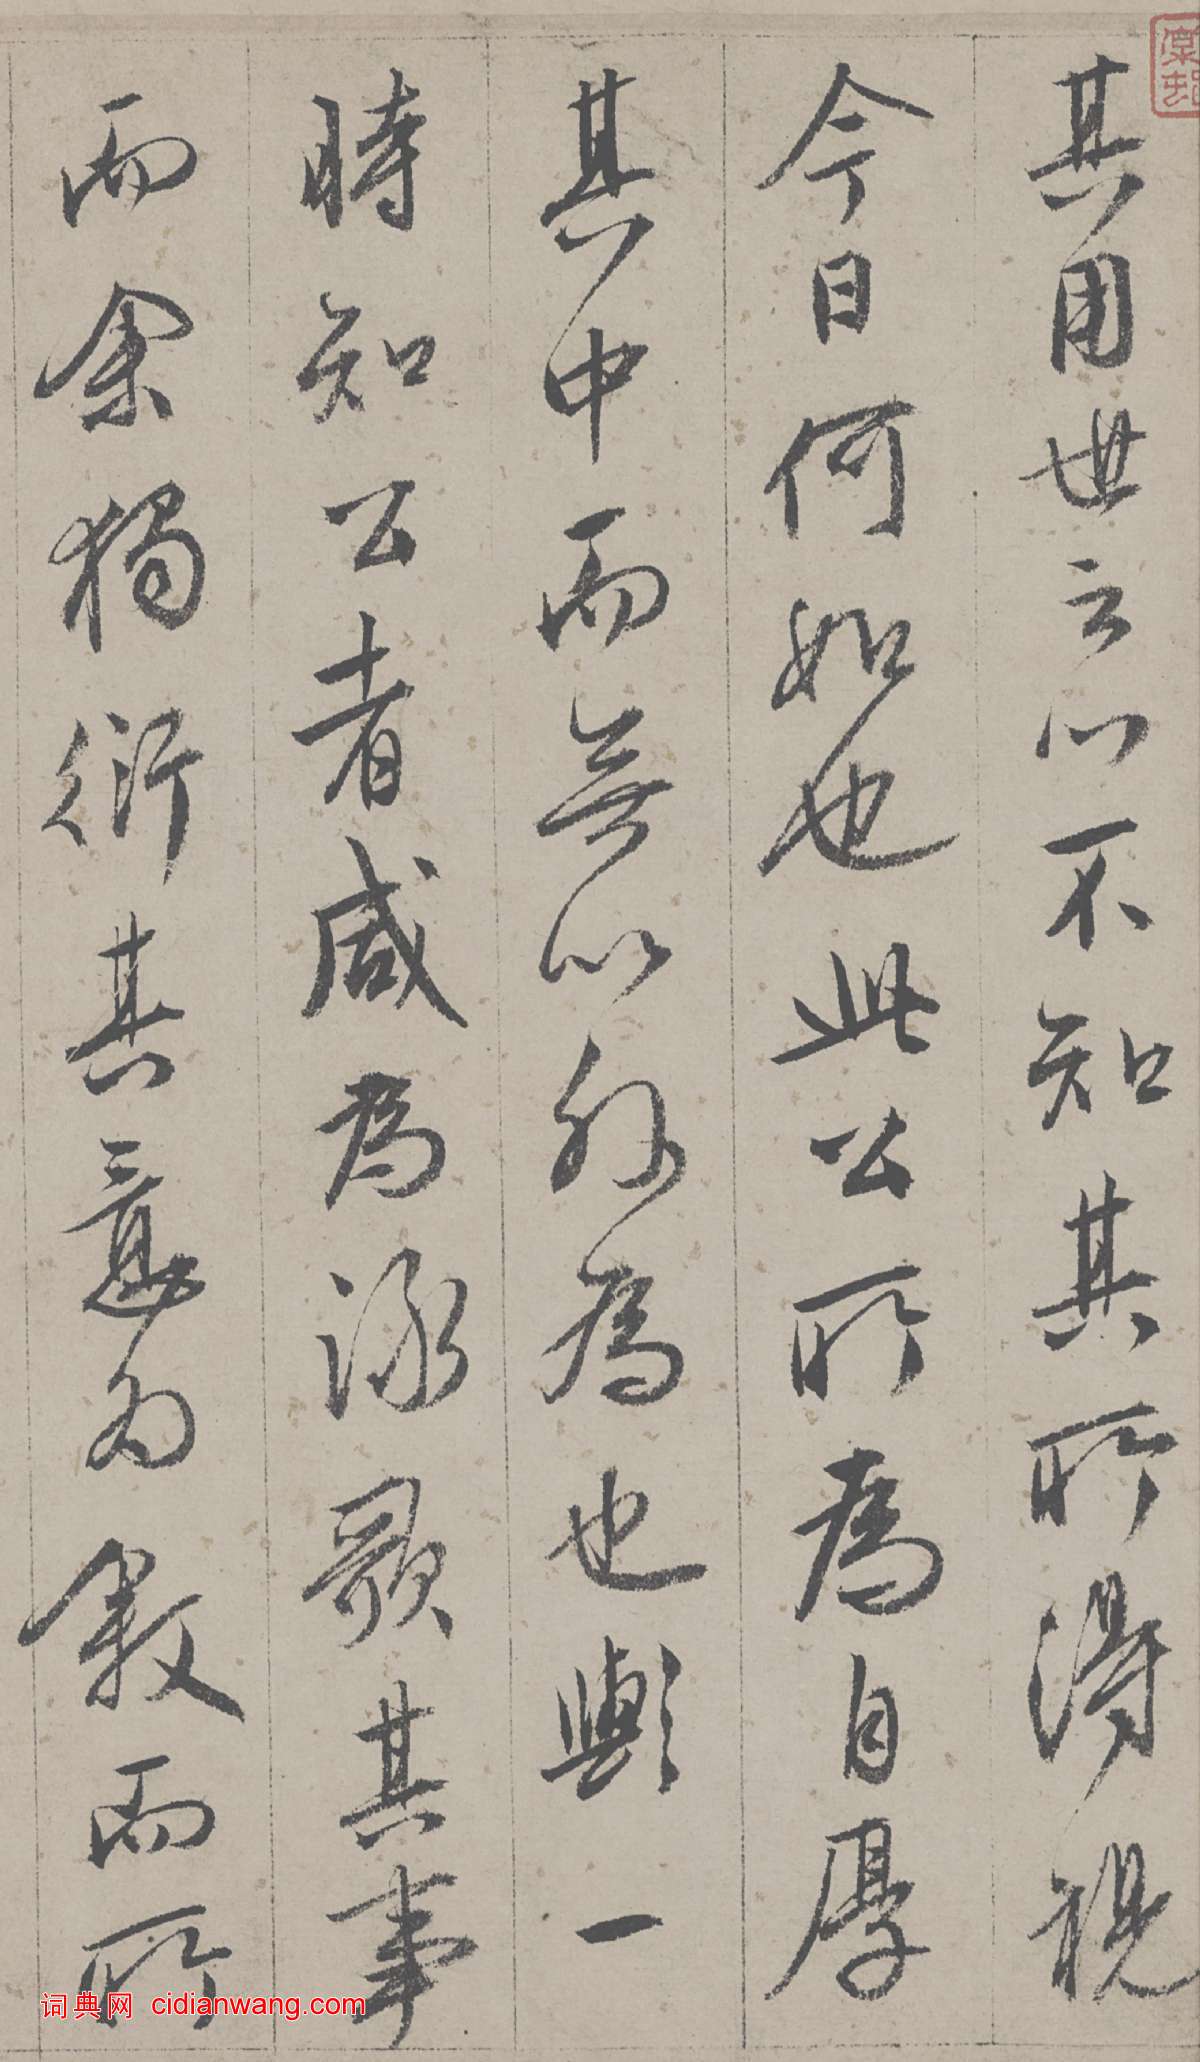 其用世之心不知其所得視
今日何如也此公所為自厚
其中而無以外為也與一
時知公者咸為詠歌其事
而余獨衍其意為敘而所
词典网 cidianwang.com